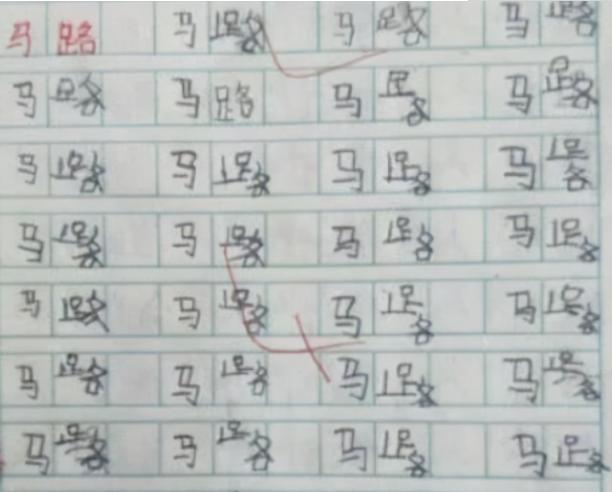 马路 马路 马路 马路
马路 马路 马路 马路
马路 马路 马路 马路
马路 马路 马路 马路
马路 马路 马路 马路
马路 马路 马路 马路
马路 马路 马路 马路